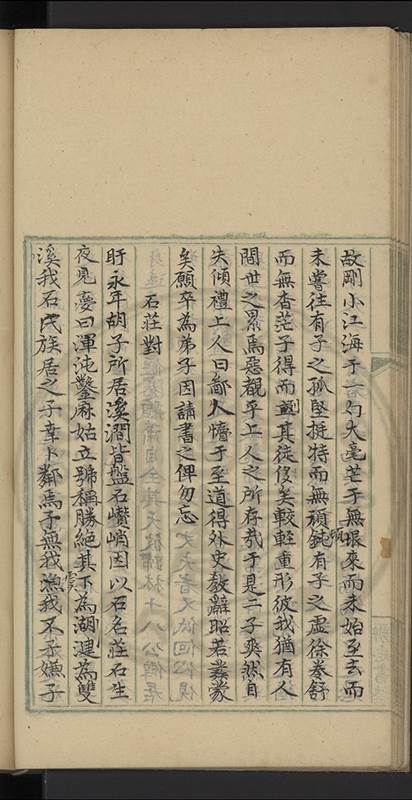 故剛小江海于一勺大毫芒于無垠來而未始至去而
未嘗往有子之孤堅挺特而無頑鈍有子之虛徐卷舒
而無杳茫子得而 其徒侈矣較輕重形彼我猶有人
間世之累焉惡覩乎上人之所存哉于是二子爽然自
失傾禮上人曰鄙人懵于至道得外史教辭昭若發蒙
矣願卒為弟子因請書之俾勿忘
石莊對
盱永年胡子所居溪澗皆盤石巑峭因以石名莊石生
夜見夢曰渾沌鑿麻姑立號稱勝絕其下為湖 為雙
溪我石氏族居之子幸卜鄰焉子無我 我不 子